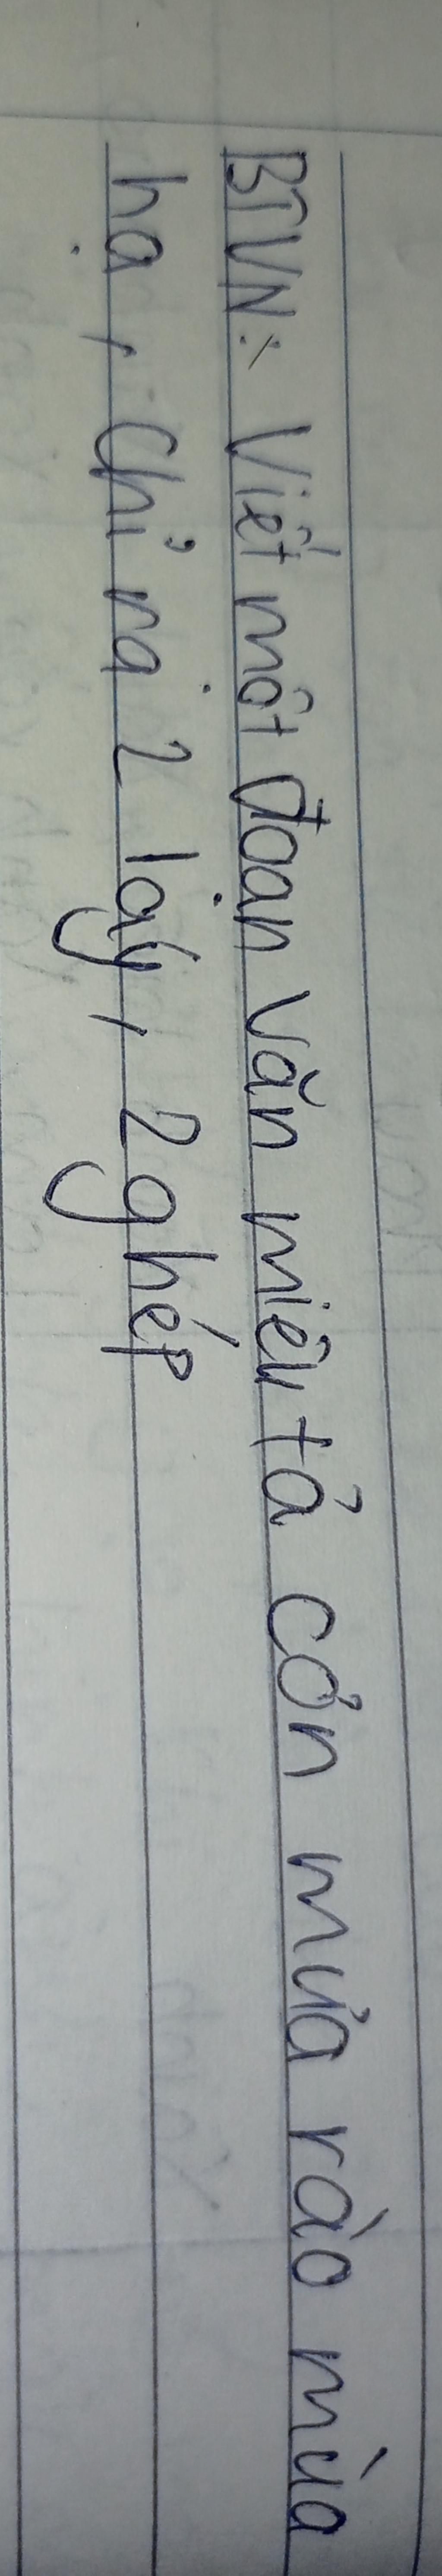 BTVN: Viết một đoạn văn miêu tả cơn mưa rào mùa
hạ, chỉ ra 2 láy, 2 ghép